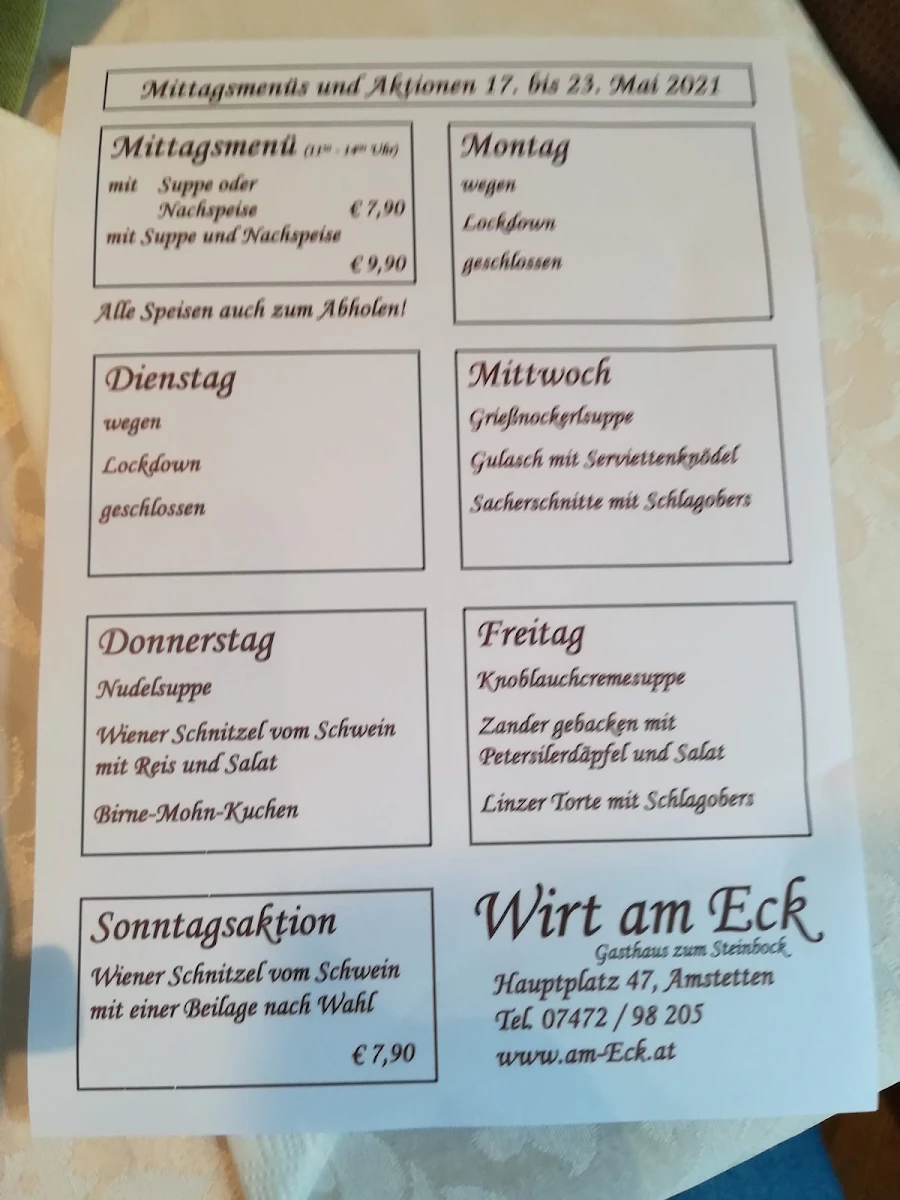 Mittagsmenüs und Aktionen 17. bis 23. Mai 2021
Mittagsmenü (11⁰⁰ - 14⁰⁰ Uhr)
mit Suppe oder
Nachspeise € 7,90
mit Suppe und Nachspeise
€ 9,90
Alle Speisen auch zum Abholen!
Montag
wegen
Lockdown
geschlossen
Dienstag
wegen
Lockdown
geschlossen
Mittwoch
Grießnockerlsuppe
Gulasch mit Serviettenknödel
Sacherschnitte mit Schlagobers
Donnerstag
Nudelsuppe
Wiener Schnitzel vom Schwein
mit Reis und Salat
Birne-Mohn-Kuchen
Freitag
Knoblauchcremesuppe
Zander gebacken mit
Petersilerdäpfel und Salat
Linzer Torte mit Schlagobers
Sonntagsaktion
Wiener Schnitzel vom Schwein
mit einer Beilage nach Wahl
€ 7,90
Wirt am Eck
Gasthaus zum Steinbock
Hauptplatz 47, Amstetten
Tel. 07472 / 98 205
www.am-Eck.at